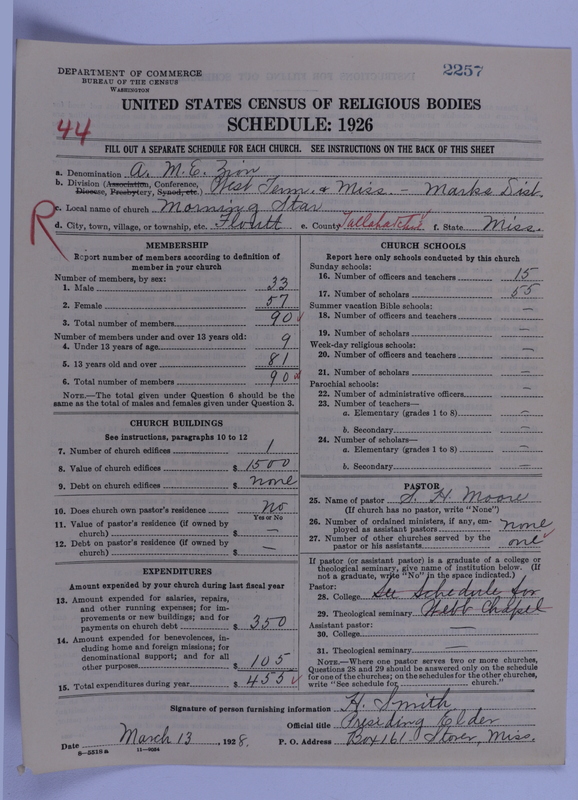 2257
DEPARTMENT OF COMMERCE
BUREAU OF THE CENSUS
WASHINGTON
UNITED STATES CENSUS OF RELIGIOUS BODIES
SCHEDULE: 1926
44
FILL OUT A SEPARATE SCHEDULE FOR EACH CHURCH. SEE INSTRUCTIONS ON THE BACK OF THIS SHEET
a. Denomination A. M. E. Zion
b. Division (Association, Conference, Diocese, Presbytery, Synod, etc.) West Tenn. & Miss. - Marks Dist.
R
c. Local name of church Morning Star
d. City, town, village, or township, etc. e. County Tallahatchie f. State Miss.
MEMBERSHIP
Report number of members according to definition of
member in your church
Number of members, by sex:
1. Male 33
2. Female 57
3. Total number of members 90
Number of members under and over 13 years old:
4. Under 13 years of age 9
5. 13 years old and over 81
6. Total number of members 90
NOTE.—The total given under Question 6 should be the
same as the total of males and females given under Question 3.
CHURCH BUILDINGS
See instructions, paragraphs 10 to 12
7. Number of church edifices 1
8. Value of church edifices $ 1500
9. Debt on church edifices $ none
10. Does church own pastor's residence No
Yes or No
11. Value of pastor's residence (if owned by
church) $ —
12. Debt on pastor's residence (if owned by
church) $ —
EXPENDITURES
Amount expended by your church during last fiscal year
13. Amount expended for salaries, repairs,
and other running expenses; for im-
provements or new buildings; and for
payments on church debt $ 350
14. Amount expended for benevolences, in-
cluding home and foreign missions; for
denominational support; and for all
other purposes $ 105
15. Total expenditures during year $ 455
CHURCH SCHOOLS
Report here only schools conducted by this church
Sunday schools:
16. Number of officers and teachers 15
17. Number of scholars 55
Summer vacation Bible schools:
18. Number of officers and teachers —
19. Number of scholars —
Week-day religious schools:
20. Number of officers and teachers —
21. Number of scholars —
Parochial schools:
22. Number of administrative officers —
23. Number of teachers—
a. Elementary (grades 1 to 8) —
b. Secondary —
24. Number of scholars—
a. Elementary (grades 1 to 8) —
b. Secondary —
PASTOR
25. Name of pastor S. H. Moore
(If church has no pastor, write "None")
26. Number of ordained ministers, if any, em-
ployed as assistant pastors none
27. Number of other churches served by the
pastor or his assistants one
If pastor (or assistant pastor) is a graduate of a college or
theological seminary, give name of institution below. (If
not a graduate, write "No" in the space indicated.)
Pastor:
28. College See Schedule for
29. Theological seminary Webb Chapel
Assistant pastor:
30. College —
31. Theological seminary —
NOTE.—Where one pastor serves two or more churches,
Questions 28 and 29 should be answered only on the schedule
for one of the churches; on the schedules for the other churches,
write "See schedule for church."
Signature of person furnishing information H. Smith
Official title Presiding Elder
Date March 13, 1928. P. O. Address Box 161 - Miss.
8—5318a 11—9064